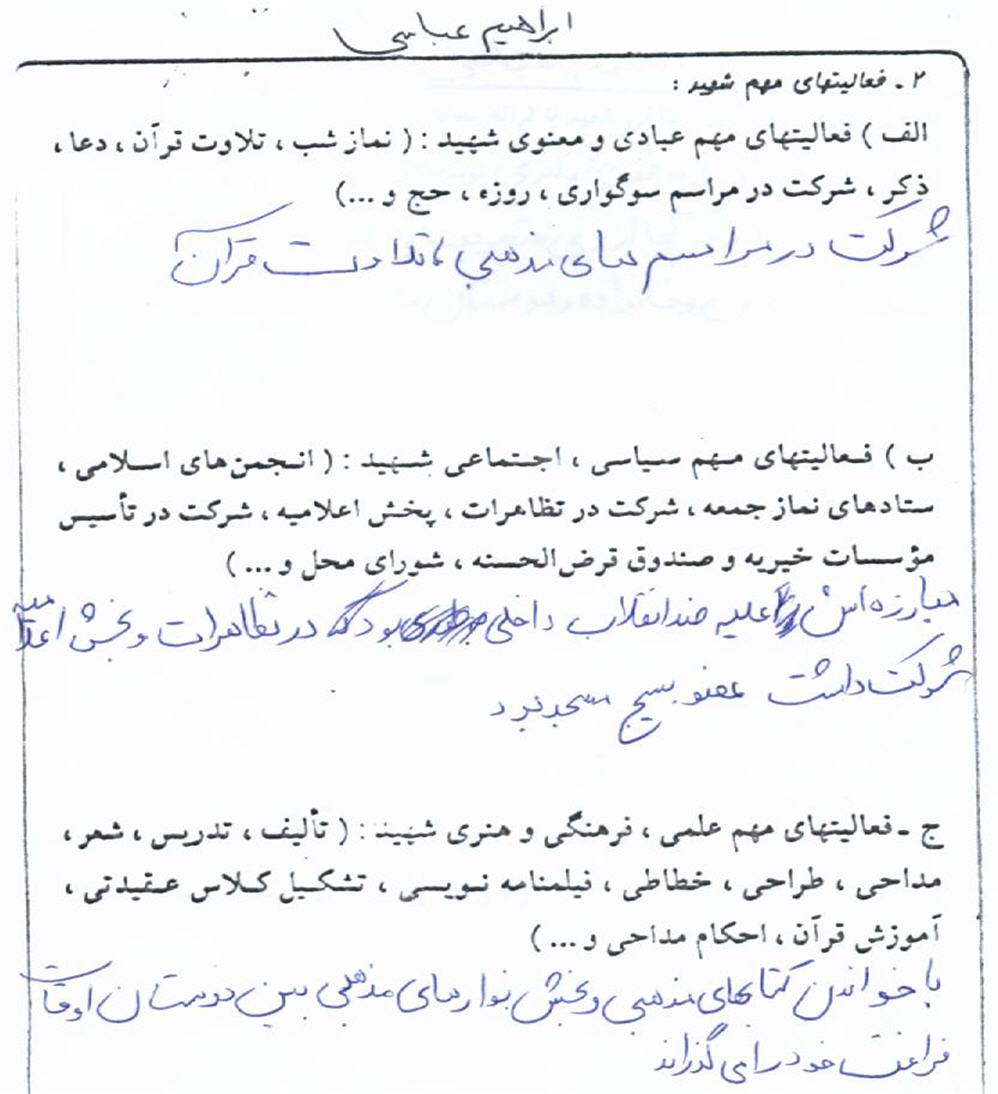 ابراهیم عباسی
۲ ـ فعالیتهای مهم شهید :
الف ) فعالیتهای مهم عبادی و معنوی شهید : ( نماز شب ، تلاوت قرآن ، دعا ،
ذکر ، شرکت در مراسم سوگواری ، روزه ، حج و ...)
شرکت در مراسم های مذهبی ، تلاوت قرآن
ب ) فعالیتهای مهم سیاسی ، اجتماعی شهید : ( انجمن‌های اسلامی ،
ستادهای نماز جمعه ، شرکت در تظاهرات ، پخش اعلامیه ، شرکت در تأسیس
مؤسسات خیریه و صندوق قرض‌الحسنه ، شورای محل و ... )
مبارزه اش علیه ضد انقلاب داخلی بود که در تظاهرات و پخش اعلامیه
شرکت داشت عضو بسیج مسجد بود
ج ـ فعالیتهای مهم علمی ، فرهنگی و هنری شهید : ( تألیف ، تدریس ، شعر ،
مداحی ، طراحی ، خطاطی ، فیلمنامه نویسی ، تشکیل کلاس عقیدتی ،
آموزش قرآن ، احکام مداحی و ... )
با خواندن کتابهای مذهبی و پخش نوارهای مذهبی بین دوستان اوقات
فراغت خود را می گذراند